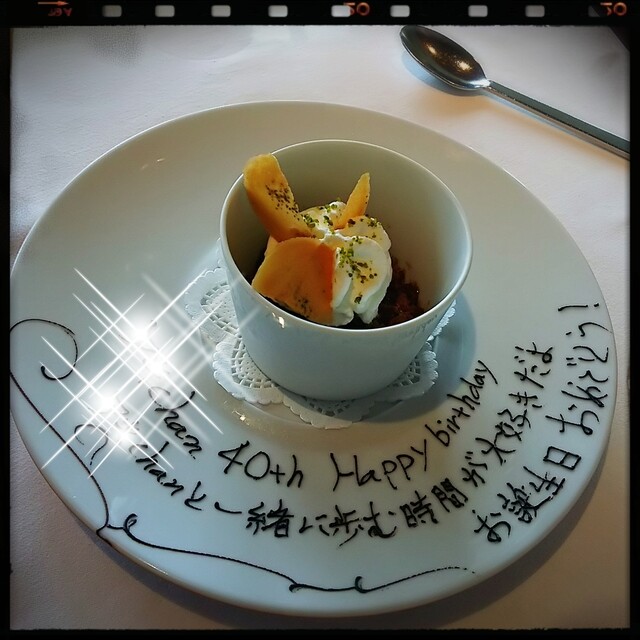 chan 40th Happy birthday
chanと一緒に歩む時間が大好きだよ
お誕生日おめでとう!
50
50